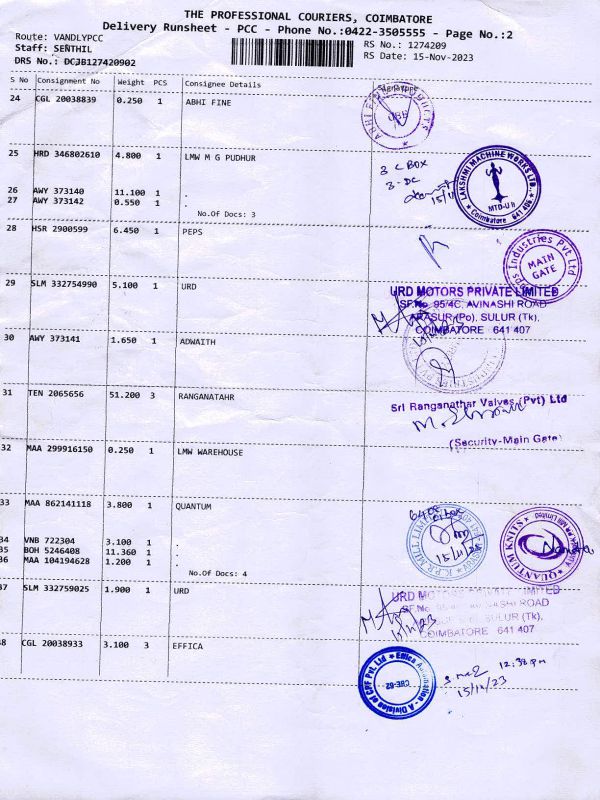 THE PROFESSIONAL COURIERS, COIMBATORE
Delivery Runsheet - PCC - Phone No.:0422-3505555 - Page No.:2
Route: VANDLYPCC
RS No.: 1274209
Staff: SENTHIL
RS Date: 15-Nov-2023
DRS No.: DCJB127420902
S No Consignment No Weight PCS Consignee Details Signature
24 CGL 20038839 0.250 1 ABHI FINE
25 HRD 346802610 4.800 1 LMW M G PUDHUR
3 C BOX
3-DC
LAKSHMI MACHINE WORKS LTD.
MTD-U II
Coimbatore 641 406
26 AWY 373140 11.100 1 .
27 AWY 373142 0.550 1 .
No.Of Docs: 3
28 HSR 2900599 6.450 1 PEPS
Peps Industries Pvt Ltd
MAIN GATE
29 SLM 332754990 5.100 1 URD
URD MOTORS PRIVATE LIMITED
SF.No. 95/4C, AVINASHI ROAD
ARASUR (Po), SULUR (Tk),
COIMBATORE 641 407
30 AWY 373141 1.650 1 ADWAITH
31 TEN 2065656 51.200 3 RANGANATAHR
Sri Ranganathar Valves (Pvt) Ltd
(Security-Main Gate)
32 MAA 299916150 0.250 1 LMW WAREHOUSE
33 MAA 862141118 3.800 1 QUANTUM
K.P.R MILL LIMITED
15/11/23
QUANTUM KNITS
34 VNB 722304 3.100 1 .
35 BOH 5246408 11.360 1 .
36 MAA 104194628 1.200 1 .
No.Of Docs: 4
37 SLM 332759025 1.900 1 URD
URD MOTORS PRIVATE LIMITED
SF.No. 95/4C, AVINASHI ROAD
ARASUR (Po), SULUR (Tk),
COIMBATORE 641 407
15/11/23
38 CGL 20038933 3.100 3 EFFICA
Effica Automation - A Division of CRF Pvt. Ltd
CBE-62
12:38 pm
15/11/23